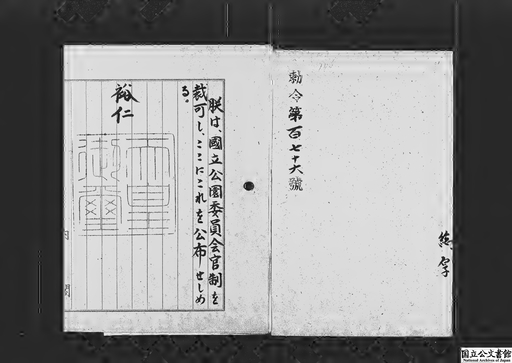 勅令第百七十六號
朕は、國立公園委員会官制を
裁可し、ここにこれを公布せしめ
る。
裕仁
天皇
御璽
内閣
国立公文書館
National Archives of Japan